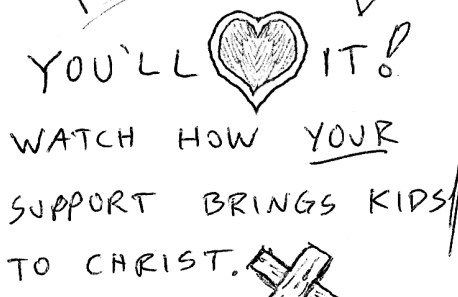 YOU'LL IT!
WATCH HOW YOUR
SUPPORT BRINGS KIDS
TO CHRIST.